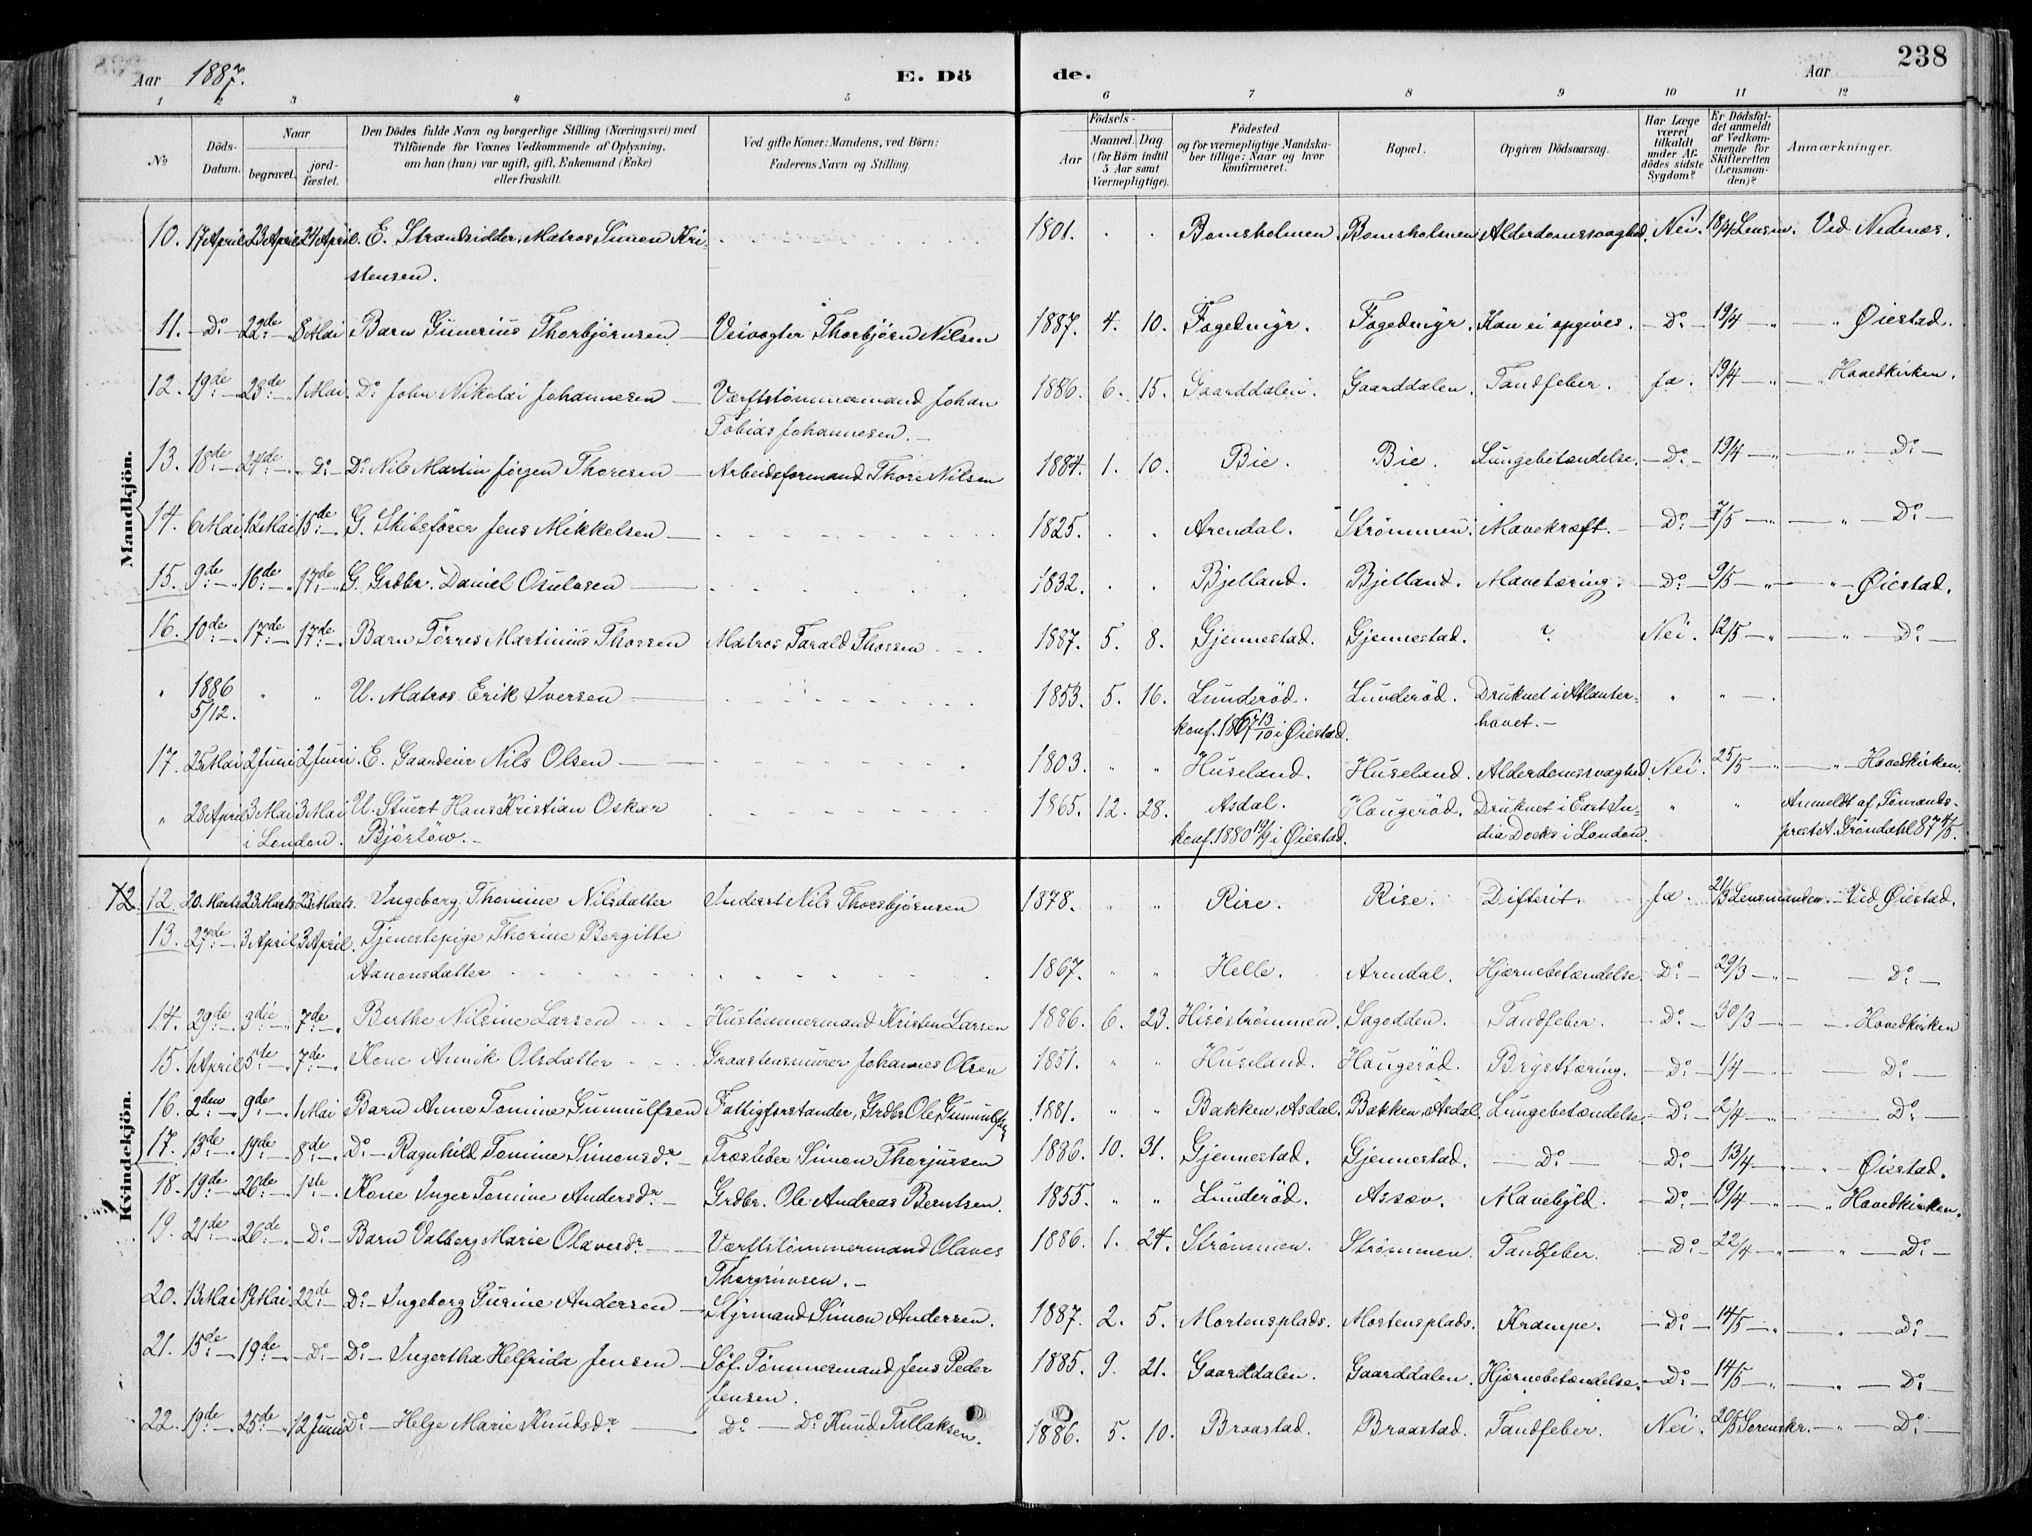 Aar 1887. E. Dö de. Aar 238
1 2 3 4 5 6 7 8 9 10 11 12
No Döds-Datum. Naar begravet. jord-fæstet. Den Dödes fulde Navn og borgerlige Stilling (Næringsvei) med Tilföiende for Voxnes Vedkommende af Oplysning, om han (hun) var ugift, gift, Enkemand (Enke) eller fraskilt. Ved gifte Koner: Mandens, ved Börn: Faderens Navn og Stilling. Födsels- Aar Maaned. Dag. (for Börn indtil 5 Aar samt Værnepligtige). Födested og for værnepligtige Mandska-ber tillige: Naar og hvor konfirmeret. Bopæl. Opgiven Dödsaarsag. Har Læge været tilkaldt under Af-dödes sidste Sygdom? Er Dödsfal-det anmeldt af Vedkom-mende for Skifteretten (Lensman-den)? Anmærkninger.
Mandkjön.
10. 17 April 23 April 24 April. E. Strandsidder, Matros Simon Kri- 1801. Bomsholmen. Bomsholmen. Alderdomssvaghed. Nei. 18/4 Lensm. Ved Nedenæs.
stensen.
11. Do 22de 8 Mai Barn Gunerius Thorbjørnsen Veivogter Thorbjørn Nilsen 1887. 4. 10. Fogedmyr. Fogedmyr. Kan ei opgives. Do 19/4 " " Øiestad.
12. 19de 23de 1 Mai. Do John Nikolai Johannesen Værftstømmermand Johan 1886. 6. 15. Gaarddalen. Gaarddalen. Tandfeber. Ja. 19/4 " " Hovedkirken.
Tobias Johannesen.
13. 18de 24de Do Do Nils Martin Jørgen Thoresen Arbeidsformand Thore Nilsen 1884. 1. 10. Bie. Bie. Lungebetændelse. Do 19/4 " Do
14. 6 Mai 12 Mai 15de G. Skibsfører Jens Mikkelsen 1825. Arendal. Strømmen. Mavekræft. Do 7/5 " " Do
15. 9de 16de 17de G. Grdbr. Daniel Osulvsen 1832. Bjelland. Bjelland. Mavetæring. Do 9/5 " " Øiestad.
16. 10de 17de 17de Barn Tørres Martinius Thorsen Matros Tarald Thorsen 1887. 5. 8. Gjennestad. Gjennestad. ? Nei. 12/5 " " Do
" 1886 " " U. Matros Erik Iversen 1853. 5. 16. Lunderød. Lunderød. Druknet i Atlanter- " "
5/12. konf. 1867 13/10 i Øiestad. havet.
17. 25 Mai 2 Juni 2 Juni. E. Gaardeier Nils Olsen 1803. " " Huseland. Huseland. Alderdomssvaghed Nei. 25/5 " " Hovedkirken.
" 28 April 3 Mai 3 Mai U. Stuert Hans Kristian Oskar 1865. 12. 28. Asdal. Haugerød. Druknet i East In- " " Anmeldt af Sømands-
i London. Bjørlow. konf. 1880 19/9 i Øiestad. dia Docks i London. prest A. Grøndahl 87 4/5.
Kvindekjön.
12 12. 20. Marts 23 Marts 23 Marts. Ingeborg Thomine Nilsdatter Inderst Nils Thorbjørnsen 1878. " " Rise. Rise. Difterit. Ja. 21/3 Lensmanden. Ved Øiestad.
13. 27de 3 April 3 April. Tjenestepige Thorine Bergitte
Aanonsdatter 1867. " " Helle. Arendal. Hjernebetændelse. Do 29/3 " Do
14. 29de 3die 7de Berthe Nilsine Larsen Hustømmermand Kristen Larsen 1886. 6. 23. Hisøstrømmen. Sagodden. Tandfeber. Do 30/3 " " Hovedkirken
15. 1 April 5te 7de Kone Annik Olsdatter Graastensmurer Johannes Olsen 1851. " " Huseland. Haugerød. Brysttæring. Do 1/4 " Do
16. 2den 9de 1 Mai Barn Anne Tomine Gunnulfsen Fattigforstander, Grdbr. Ole Gunnulfsen 1881. " " Bakken, Asdal. Bakken, Asdal. Lungebetændelse. Do 2/4 " " Do
17. 13de 19de 8de Do Ragnhild Tomine Simonsdr Træsliber Simon Thorjussen 1886. 10. 31. Gjennestad. Gjennestad. Do Do 13/4 " " Øiestad.
18. 19de 26de 1ste Kone Inger Tomine Andersdr Grdbr. Ole Andreas Berntsen. 1855. " " Lunderød. Assæv. Mavebyld. Do 19/4 " " Hovedkirken.
19. 21de 26de Do Barn Valborg Marie Olavesdr Værftstømmermand Olaves 1886. 1. 24. Strømmen. Strømmen. Tandfeber. Do 22/4 " " Do
Thorgrimsen.
20. 13 Mai 19 Mai. 22de Do Ingeborg Gurine Andersen Styrmand Simon Andersen. 1887. 2. 5. Mortensplads. Mortensplads. Krampe. Do 14/5 " " Do
21. 15de 19de Do Do Ingertha Helfrida Jensen Søf. Tømmermand Jens Peder 1885. 9. 21. Gaarddalen. Gaarddalen. Hjernebetændelse. Do 14/5 " " Do
Jensen.
22. 19de 25de 12 Juni Do Helge Marie Knudsdr Do Do Knud Tallaksen. 1886. 5. 10. Braastad. Braastad. Tandfeber. Nei. 20/5 Sorenskr. " Do